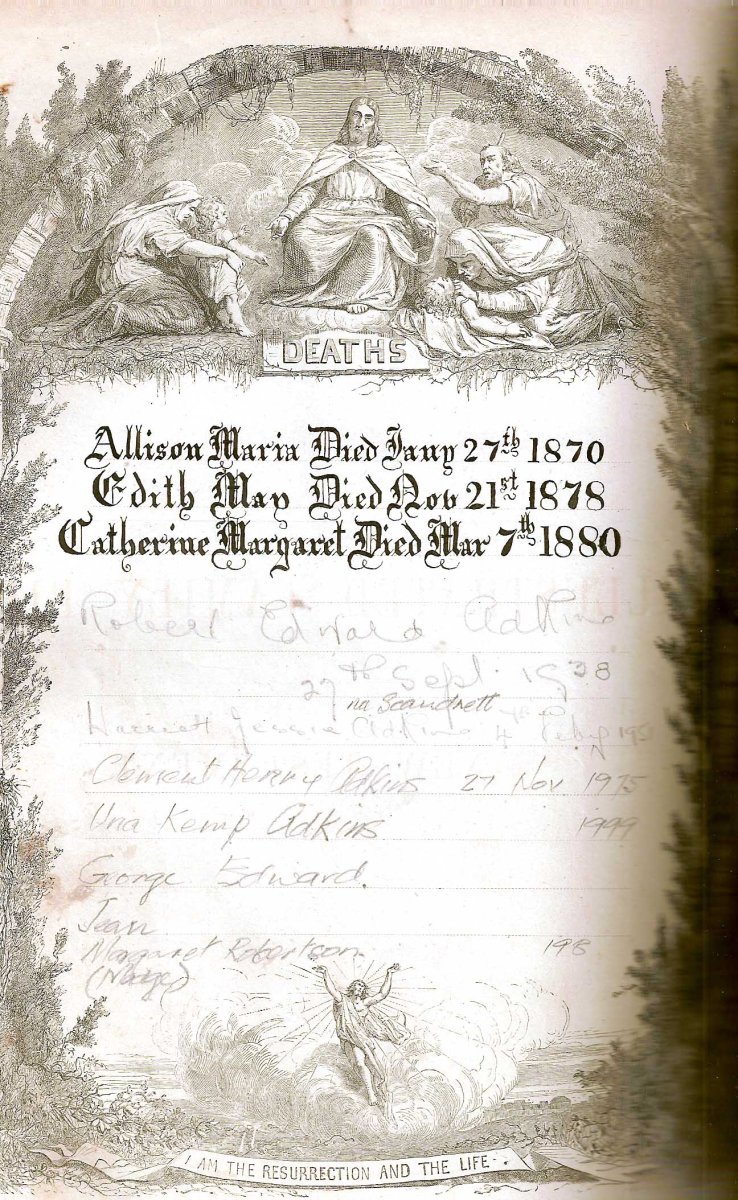 DEATHS
Allison Maria Died Jany 27th 1870
Edith May Died Nov 21st 1878
Catherine Margaret Died Mar 7th 1880
Robert Edward Adkins
27th Sept. 1938
na Scandrett
Harriett Jessie Adkins 4th Feby 195
Clement Henry Adkins 27 Nov 1975
Una Kemp Adkins 1999
George Edward.
Jean
Margaret Robertson 198
(Madge)
I AM THE RESURRECTION AND THE LIFE